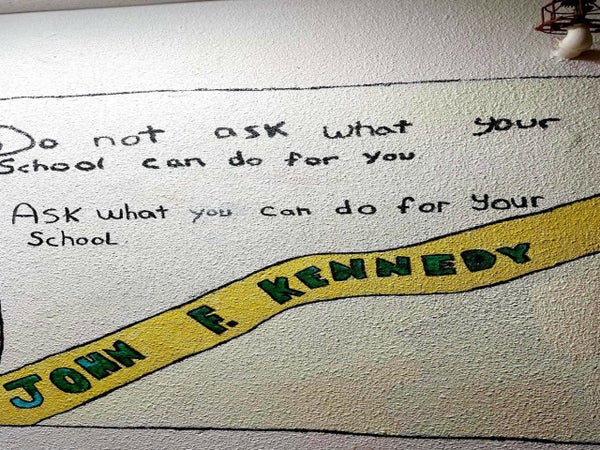 Do not ask what your
School can do for you
Ask what you can do for your
School.
JOHN F. KENNEDY